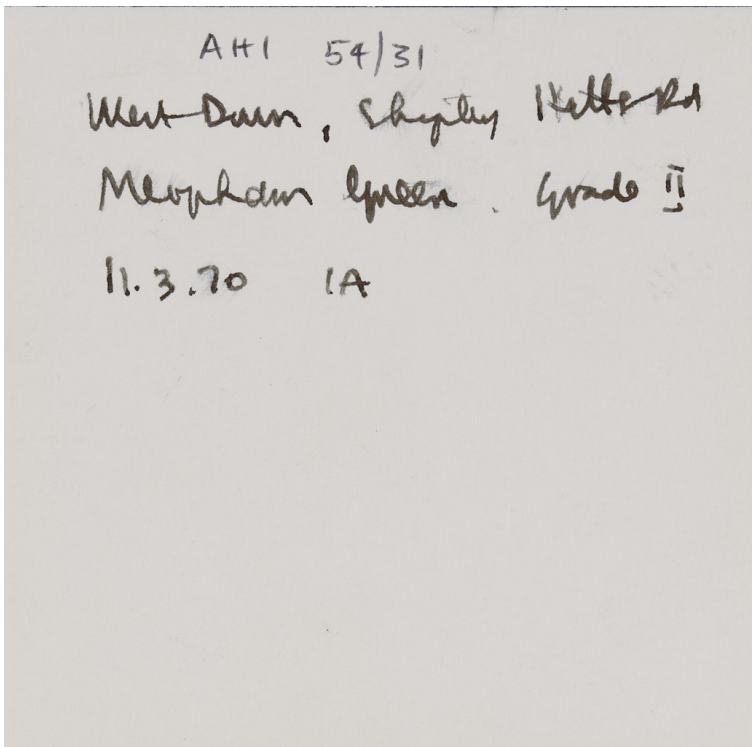 AHI 54/31
West Down, Shipley Hills Rd
Meopham Green. Grade II
11.3.70 1A